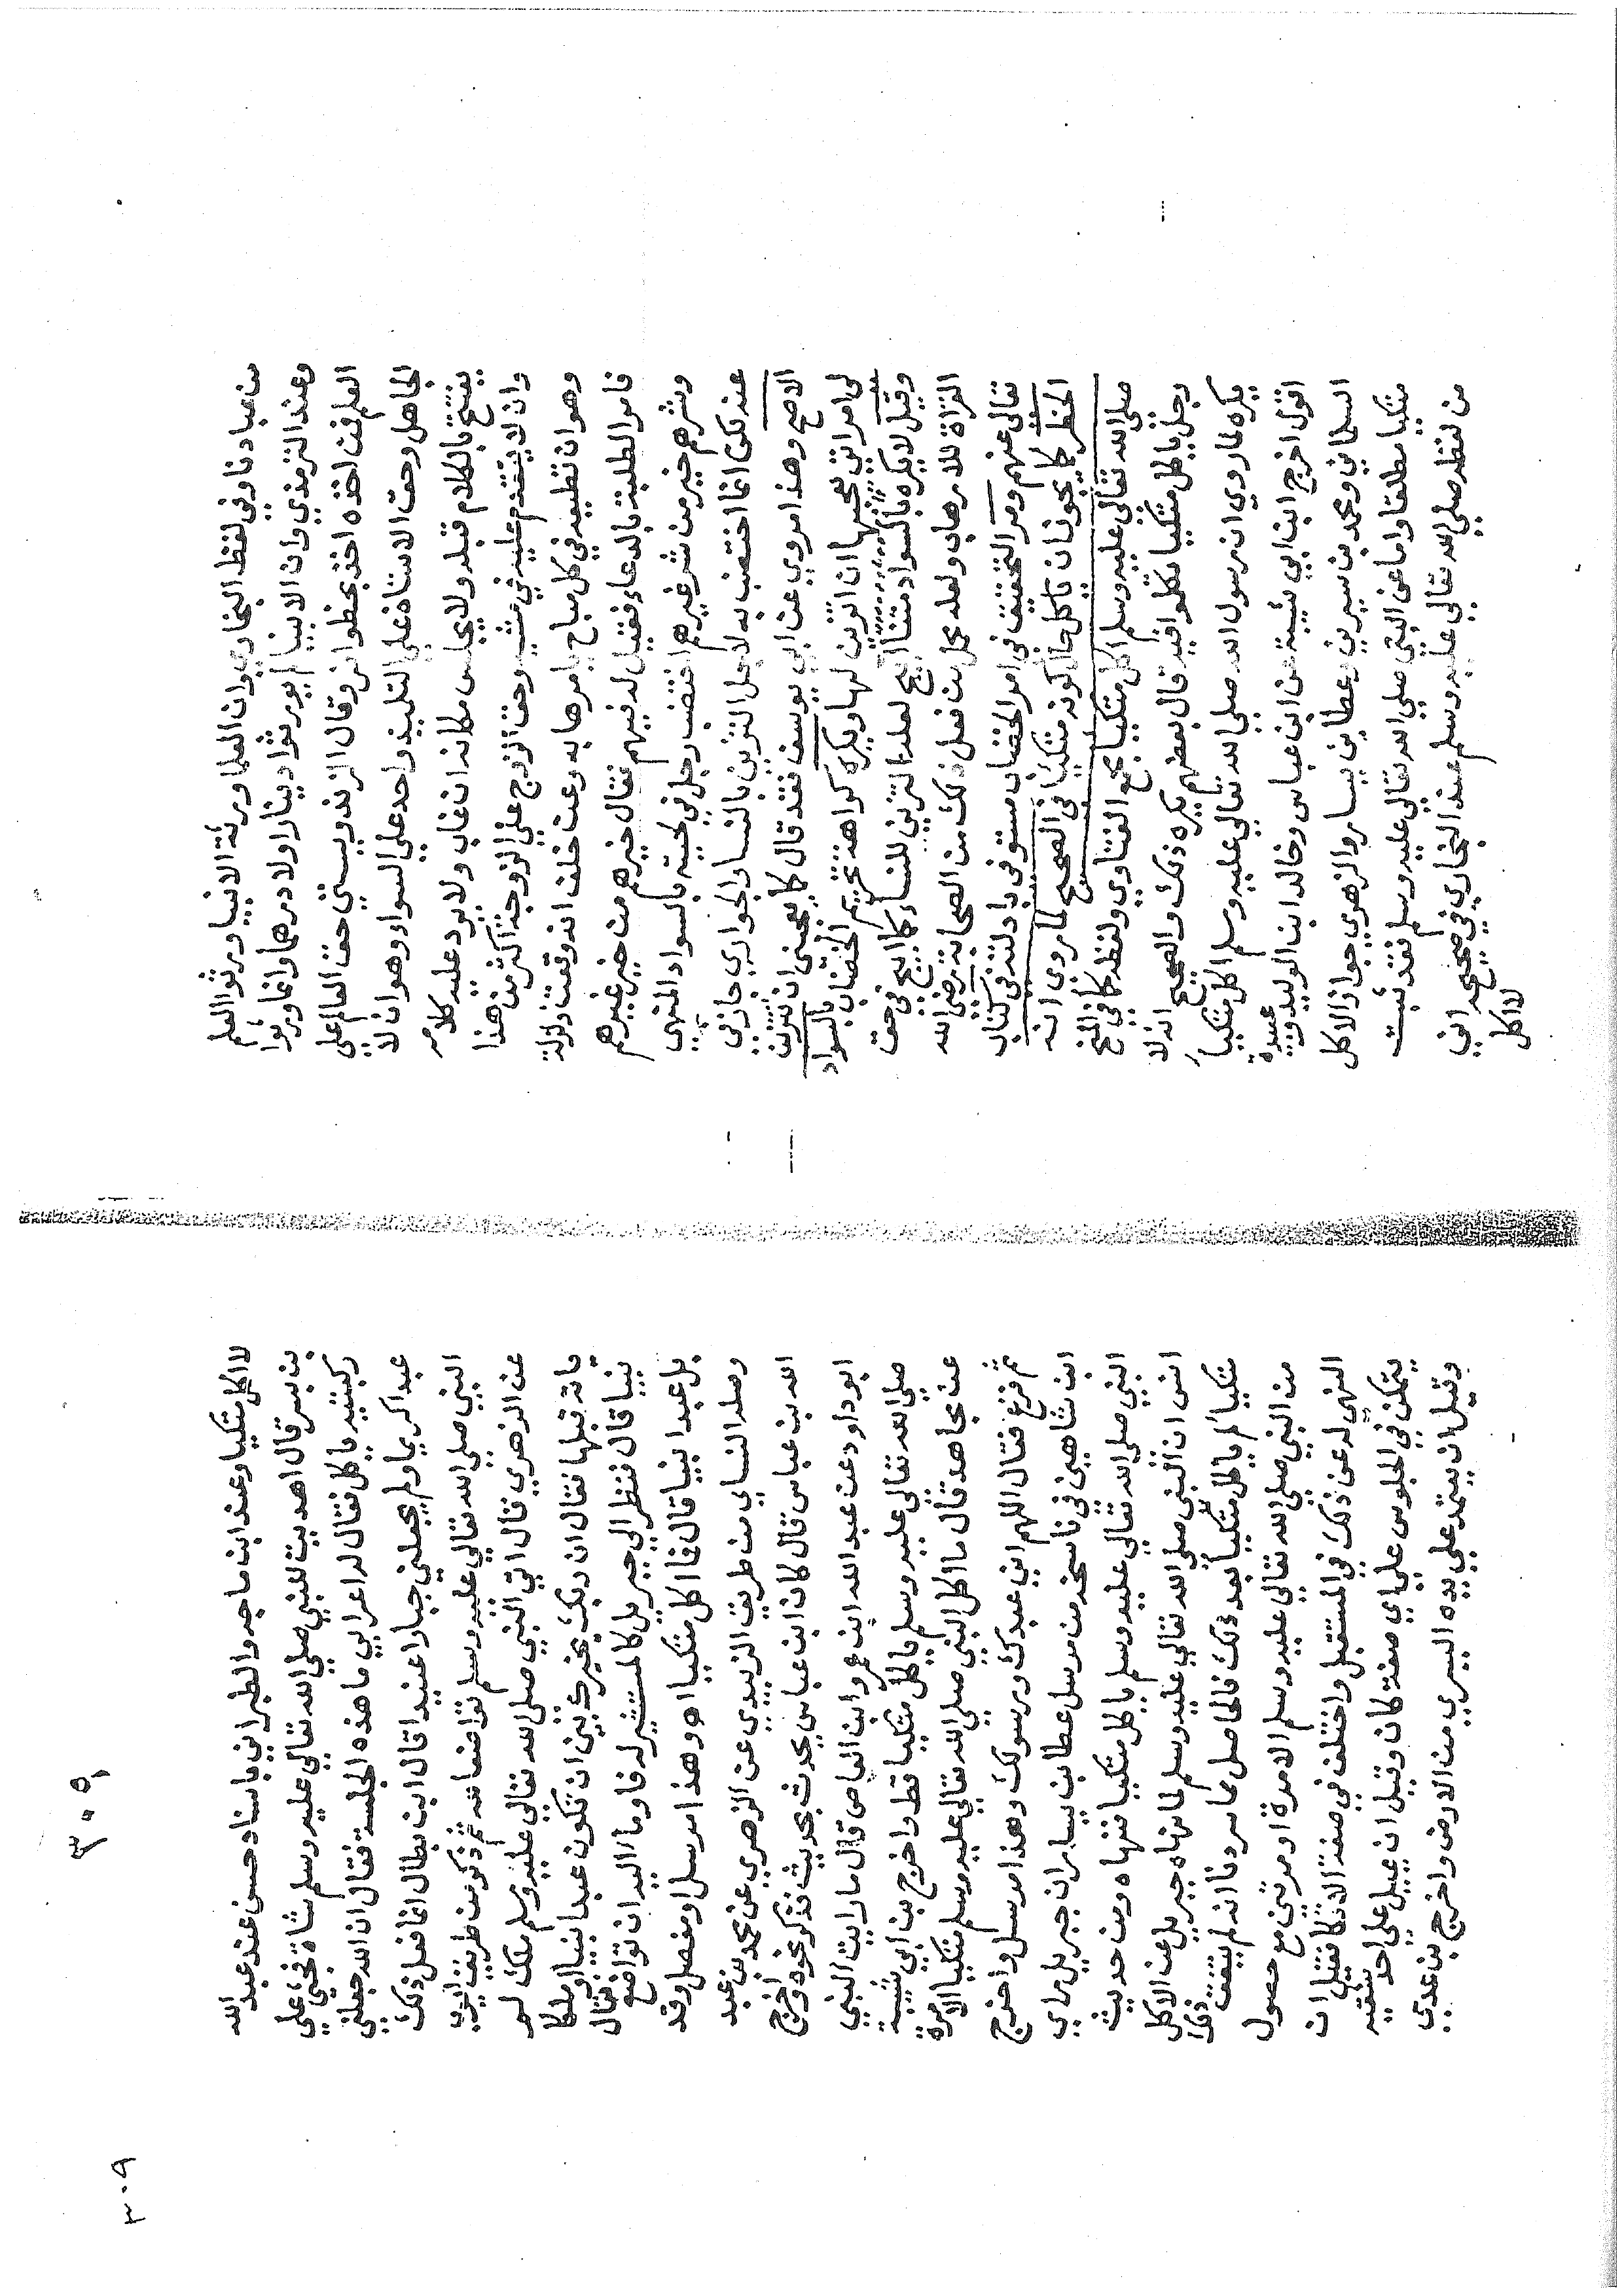 من عبادنا وفي لفظ البخاري وان العلما ورثة الانبيا ورثوا العلم
وعند الترمذي وان الانبيا لم يورثوا دينارا ولا درهما وانما ورثوا
العلم فمن اخذه اخذ بحظ وافر وقال الزندويستي حق العالم علي
الجاهل وحق الاستاذ علي التلميذ واحد علي السواء وهو ان لا
يفتتح بالكلام قبله ولا يجلس مكانه ان غاب ولا يرد عليه كلامه
وان لا يتقدم عليه في مشيه وحق الزوج علي الزوجة اكثر من هذا
وهو ان تطيعه في كل مباح يامرها به وعن خلف انه وقعت زلزلة
فامر الطلبة بالدعاء فقيل له فيهم فقال خيرهم من خير غيرهم
وشرهم خير من شر غيرهم اختضب رجل في لحيته بالسواد المنهي
عنه لكن انما اختضب به لاجل التزين بالنسا والجواري جاز في
الاصح وهذا مروي عن ابي يوسف فقد قال كما يعجبني ان تتزين
لي امراتي يعجبها ان اتزين لها ويكره كراهة تحريم الخضاب بالسواد
وقيل لا يكره بالسواد متنا ابيح لعلة التزين للنساء كما ابيح في حق
الغزاة للارهاب ولعله محل من فعل ذلك من الصحابة رضي الله
تعالي عنهم ومر التحقيق في امر الخضاب مستوفي بادلته في كتاب
الحظر كما يجوز ان ياكل حال كونه متكيا في الصحيح لما روي انه
صلي الله تعالي عليه وسلم اكل متكيا مجمع الفتاوي ولفظه كما في المنح
رجل ياكل متكيا تكلموا فيه قال بعضهم يكره ذلك والصحيح انه لا
يكره لما روي ان رسول الله صلي الله تعالي عليه وسلم اكل متكياً
اقول اخرج ابن ابي شيبة عن ابن عباس وخالد ابن الوليد وعبيدة
السلماني ومحمد بن سيرين وعطا بن يسار والزهري جواز الاكل
متكيا مطلقا واما عن النبي صلي الله تعالي عليه وسلم فقد ثبت
من لفظه صلي الله تعالي عليه وسلم عند البخاري في صحيحه اني
لا اكل
٣٠٩
لا اكل متكيا وعند ابن ماجه والطبراني باسناد حسن عند عبد الله
بن بسر قال اهديت للنبي صلي الله تعالي عليه وسلم شاة فجثي علي
ركبتيه ياكل فقال له اعرابي ما هذه الجلسة فقال ان الله جعلني
عبدا كريما ولم يجعلني جبارا عنيدا قال ابن بطال انما فعل ذلك
النبي صلي الله تعالي عليه وسلم تواضعا لله ثم ذكر من طريق ايوب
عن الزهري قال اتي النبي صلي الله تعالي عليه وسلم ملك لم
ياته قبلها فقال ان ربك يخيرك بين ان تكون عبدا نبيا او ملكا
نبيا قال فنظر الي جبريل كالمستشير له فاوما اليه ان تواضع فقال
بل عبدا نبيا قال فما اكل متكيا اه وهذا مرسل او معضل وقد
وصله النساي من طريق الزبيدي عن الزهري عن محمد بن عبد
الله بن عباس قال كان ابن عباس يحدث بحديث فذكر نحوه واخرج
ابو داود عن عبد الله ابن عمرو ابن العاص قال ما رايت النبي
صلي الله تعالي عليه وسلم ياكل متكيا قط واخرج بن ابي شيبة
عن مجاهد قال ما اكل النبي صلي الله تعالي عليه وسلم متكيا الا مرة
ثم فزع فقال اللهم اني عبدك ورسولك وهذا مرسل واخرج
ابن شاهين في ناسخه من مرسل عطا بن يسار ان جبريل راي
النبي صلي الله تعالي عليه وسلم ياكل متكيا فنهاه ومن حديث
انس ان النبي صلي الله تعالي عليه وسلم لما نهاه جبريل عن الاكل
متكياً لم ياكل متكياً بعد ذلك فالحاصل مما سردنا انه لم يتفق ذا
من النبي صلي الله تعالي عليه وسلم الا مرة او مرتين مع حصول
النهي له عن ذلك في المستقبل واختلف في صفة الاتكا فقيل ان
يتمكن في الجلوس علي اي صفة كان وقيل ان يميل علي احد شقيه
وقيل ان يعتمد علي يده اليسري من الارض واخرج بن عدي
٣٠٩